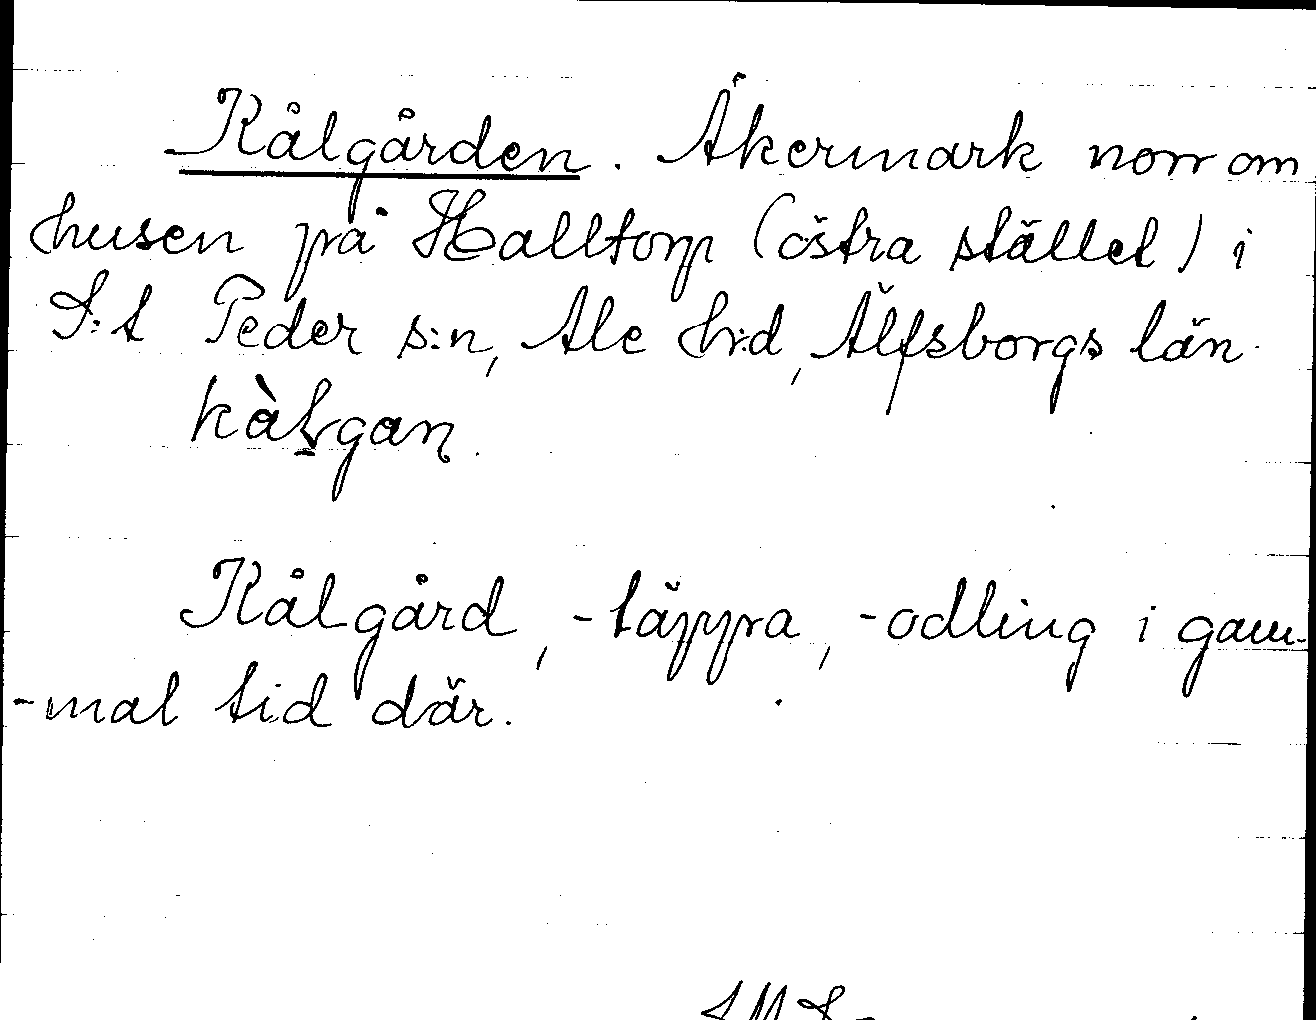 Kålgården. Åkermark norr om
husen på Halltorp (östra stället) i
S:t Peder s:n, Ale h:d, Älfsborgs län.
Kålgård, -täppa, -odling i gam-
-mal tid där.